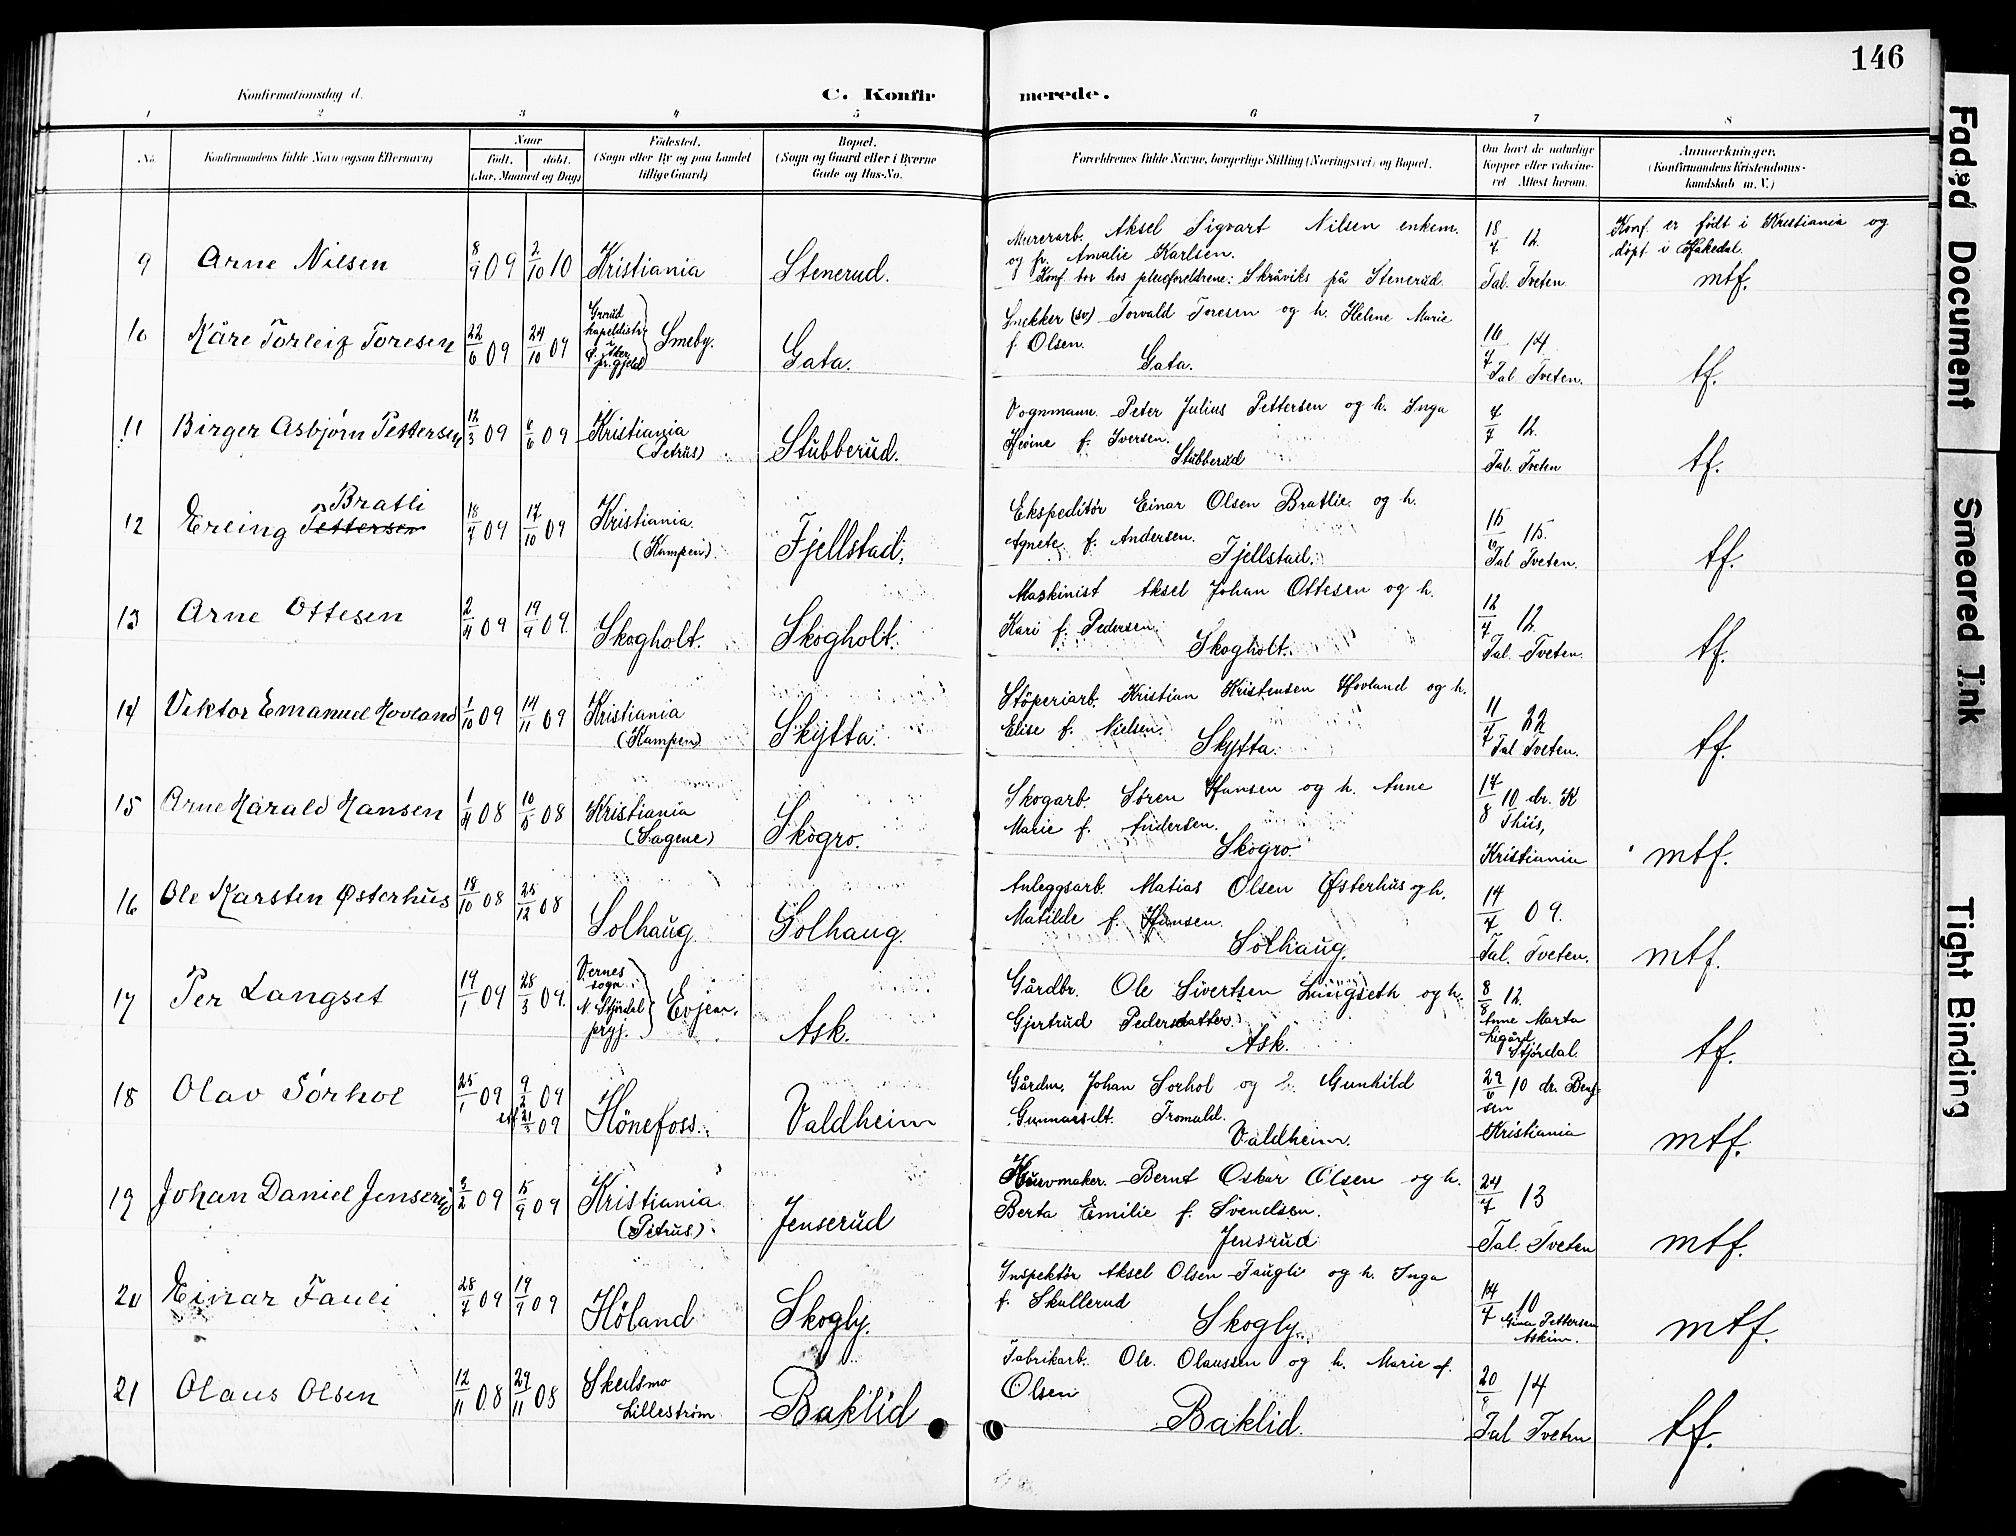 146
Konfirmationsdag d.
C. Konfirmerede.
1 2 3 4 5 6 7 8
No. Konfirmandens fulde Navn (ogsaa Efternavn) Naar født. døbt. (Aar, Maaned og Dag) Fødested. (Sogn eller By og paa Landet tillige Gaard) Bopæl. (Sogn og Gaard eller i Byerne Gade og Hus-No. Forældrenes fulde Navne, borgerlige Stilling (Næringsvei) og Bopæl. Om havt de naturlige Kopper eller vaksineret Attest herom. Anmerkninger, (Konfirmandens Kristendomskundskab m. V.)
9 Arne Nilsen 8/9 09 2/10 10 Kristiania Stenerud.
Murerarb. Aksel Sigvart Nilsen enkem.
og fr. Amalie Karlsen.
Konf. bor hos pleieforeldrene: Skråviks på Stenerud.
18/7 12. Tal. Tveten
Konf. er født i Kristiania og
døpt i Hakedal.
mtf.
10 Kåre Torleif Toresen 22/6 09 24/10 09 Grorud kapeldistr. i Ø. Aker pr.gjeld Smeby. Gata.
Snekker (sv) Torvald Toresen og h. Helene Marie
f. Olsen.
Gata.
16/7 14 Tal Tveten.
tf.
11 Birger Asbjørn Pettersen 12/3 09 6/6 09 Kristiania (Petrus) Stubberud.
Vognmann. Peter Julius Pettersen og h. Inga
f. Iversen.
Stubberud
4/7 12. Tal. Tveten
tf.
12 Erling Pettersen Bratli 18/7 09 17/10 09 Kristiania. (Kampen). Fjellstad.
Ekspeditør Einar Olsen Bratlie. og h.
Agnete f. Andersen.
Fjellstad.
15/6 15. Tal Tveten.
tf.
13 Arne Ottesen 2/4 09 19/9 09. Skogholt. Skogholt.
Maskinist Aksel Johan Ottesen og h.
Kari f. Pedersen.
Skogholt.
12/7 12. Tal. Tveten.
tf.
14 Viktor Emanuel Hovland 1/10 09 14/11 09 Kristiania (Kampen) Skytta.
Støperiarb. Kristian Kristensen Hovland og h.
Elise f. Nielsen.
Skytta.
11/7 22 Tal Tveten.
tf.
15 Arne Harald Hansen 1/4 08 10/5 08 Kristiania (Sagene) Skogro.
Skogarb. Søren Hansen og h. Anne
Marie f. Andersen.
Skogro.
14/8 10 dr. K Thiis, Kristiania
mtf.
16 Ole Karsten Østerhus 18/10 08 25/12 08 Solhaug Solhaug.
Anleggsarb. Matias Olsen Østerhus og h.
Matilde f. Hansen.
Solhaug.
14/7 09. Tal. Tveten.
mtf.
17 Per Langset 19/1 09 28/3 09. Vernes sogn. N. Stjørdal prgj. Evjen. Ask.
Gårdbr. Ole Sivertsen Langseth og h.
Gjertrud Pedersdatter.
Ask.
8/8 12. Anne Marta Ligård Stjørdal.
tf.
18 Olav Sørhol 25/1 09 9/2 09 21/3 09 Hønefoss. Valdheim
Gårdm. Johan Sorhol og h. Gunhild
Gunnarsdt. Tromald.
Valdheim.
29/6 10 dr. Kristiania
mtf.
19 Johan Daniel Jenserud 3/2 09 15/9 09 Kristiania. (Petrus). Jenserud
Kurvmaker. Bernt Oskar Olsen og h.
Berta Emilie f. Svendsen.
Jensrud
24/7 13 Tal. Tveten
mtf.
20 Einar Fauli 28/7 09 19/9 09 Höland Skogly.
Inspektör Aksel Olsen Faugli og h. Inga
f. Skullerud
Skogly.
14/7 10 Gina Pettersen Askim.
mtf.
21 Olaus Olsen 12/11 08 29/11 08 Skedsmo Lillestrøm Baklid
Fabrikarb. Ole. Olaussen og h. Marie f.
Olsen
Baklid.
20/8 14 Tal Tveten
tf.
Faded Document
Smeared Ink
Tight Binding